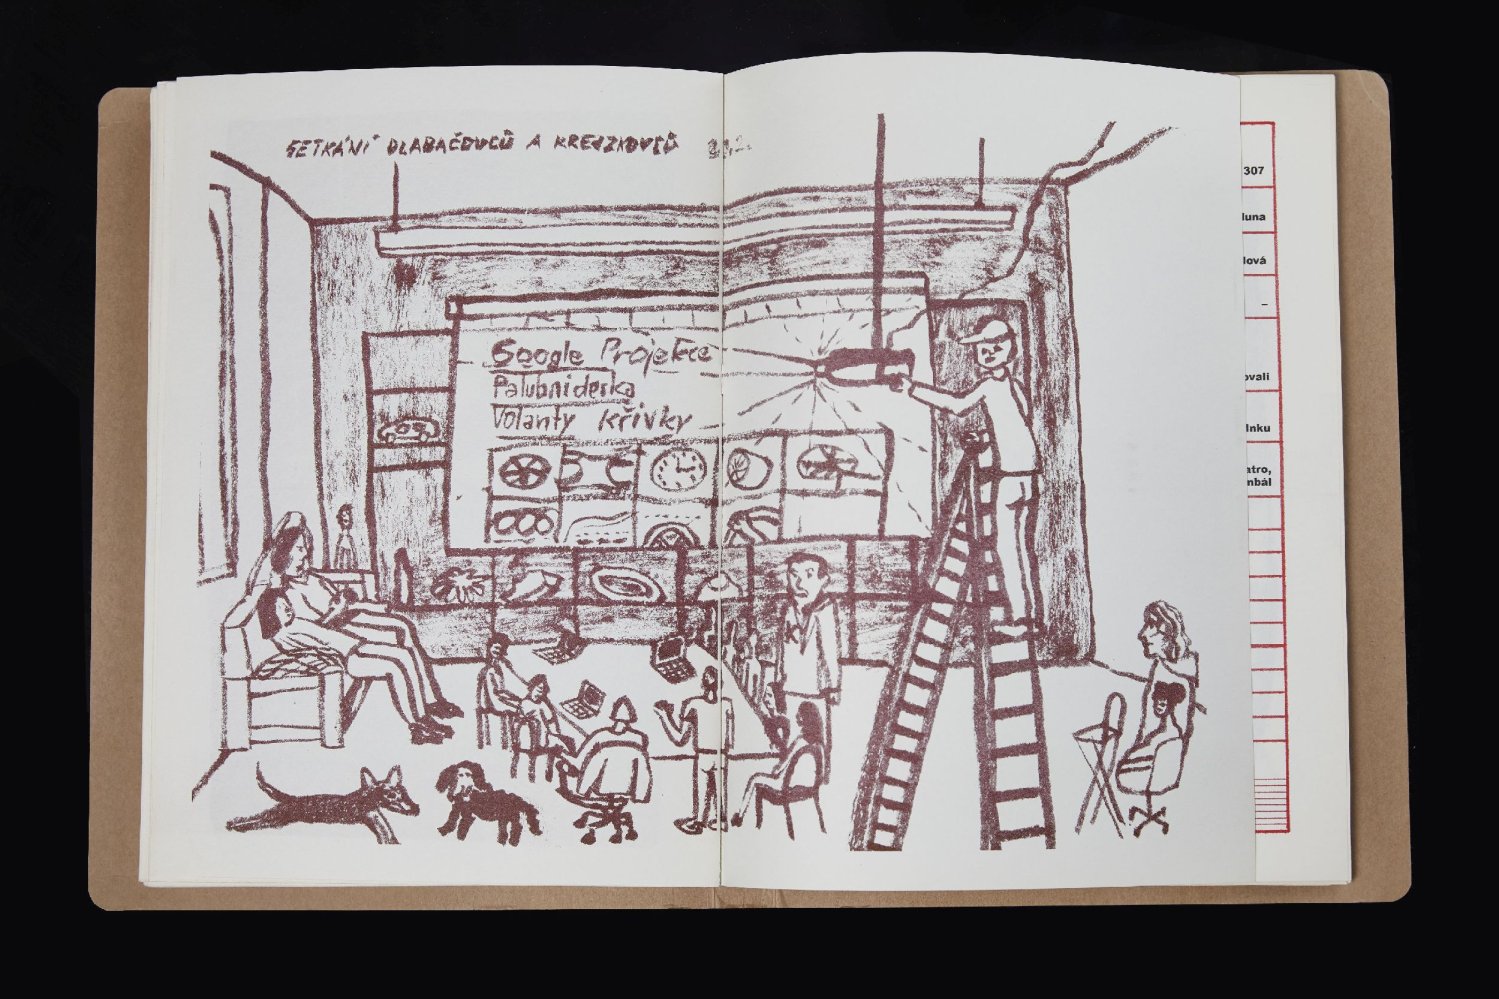 SETKÁNÍ DLABAČOVCŮ A KREUZKOVCŮ
Google Projekce
Palubní deska
Volanty křivky
307
luna
lová
–
ovali
lnku
atro,
mbál